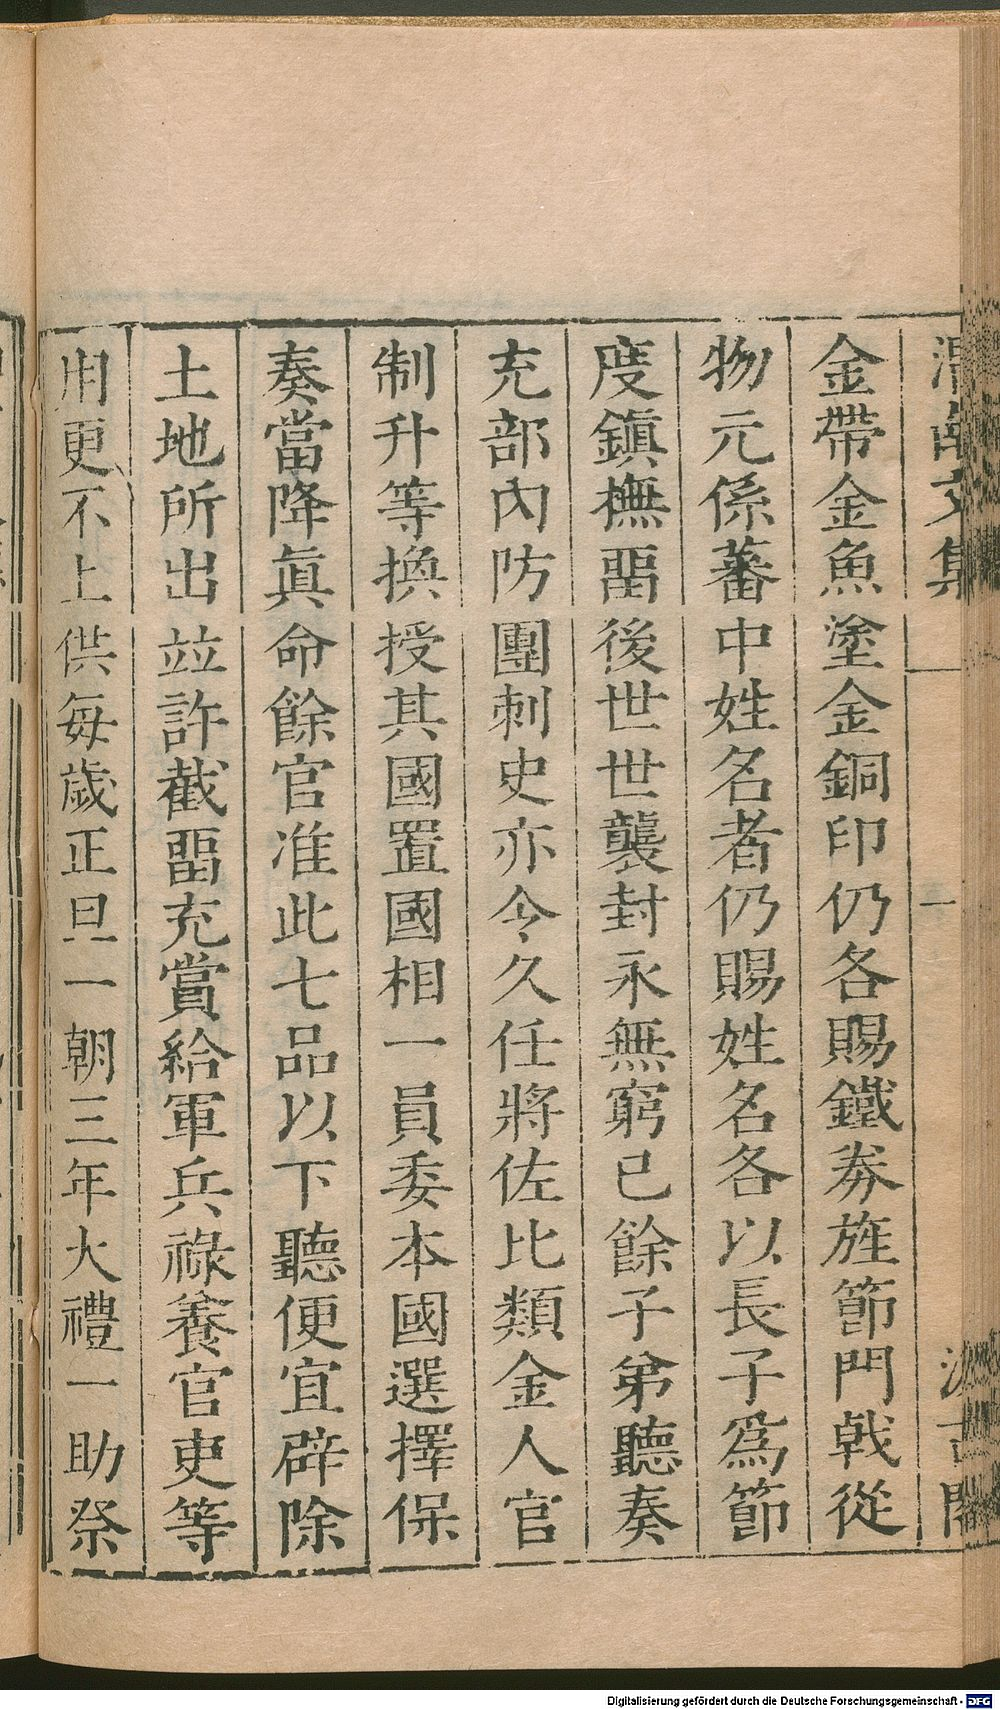 渭南文集
一
汲古閣
金帶金魚塗金銅印仍各賜鐵券旌節門戟從
物元係蕃中姓名者仍賜姓名各以長子爲節
度鎮撫畱後世世襲封永無窮已餘子弟聽奏
充部內防團刺史亦令久任將佐比類金人官
制升等換授其國置國相一員委本國選擇保
奏當降眞命餘官准此七品以下聽便宜辟除
土地所出竝許截畱充賞給軍兵祿養官吏等
用更不上供每歲正旦一朝三年大禮一助祭
Digitalisierung gefördert durch die Deutsche Forschungsgemeinschaft - DFG